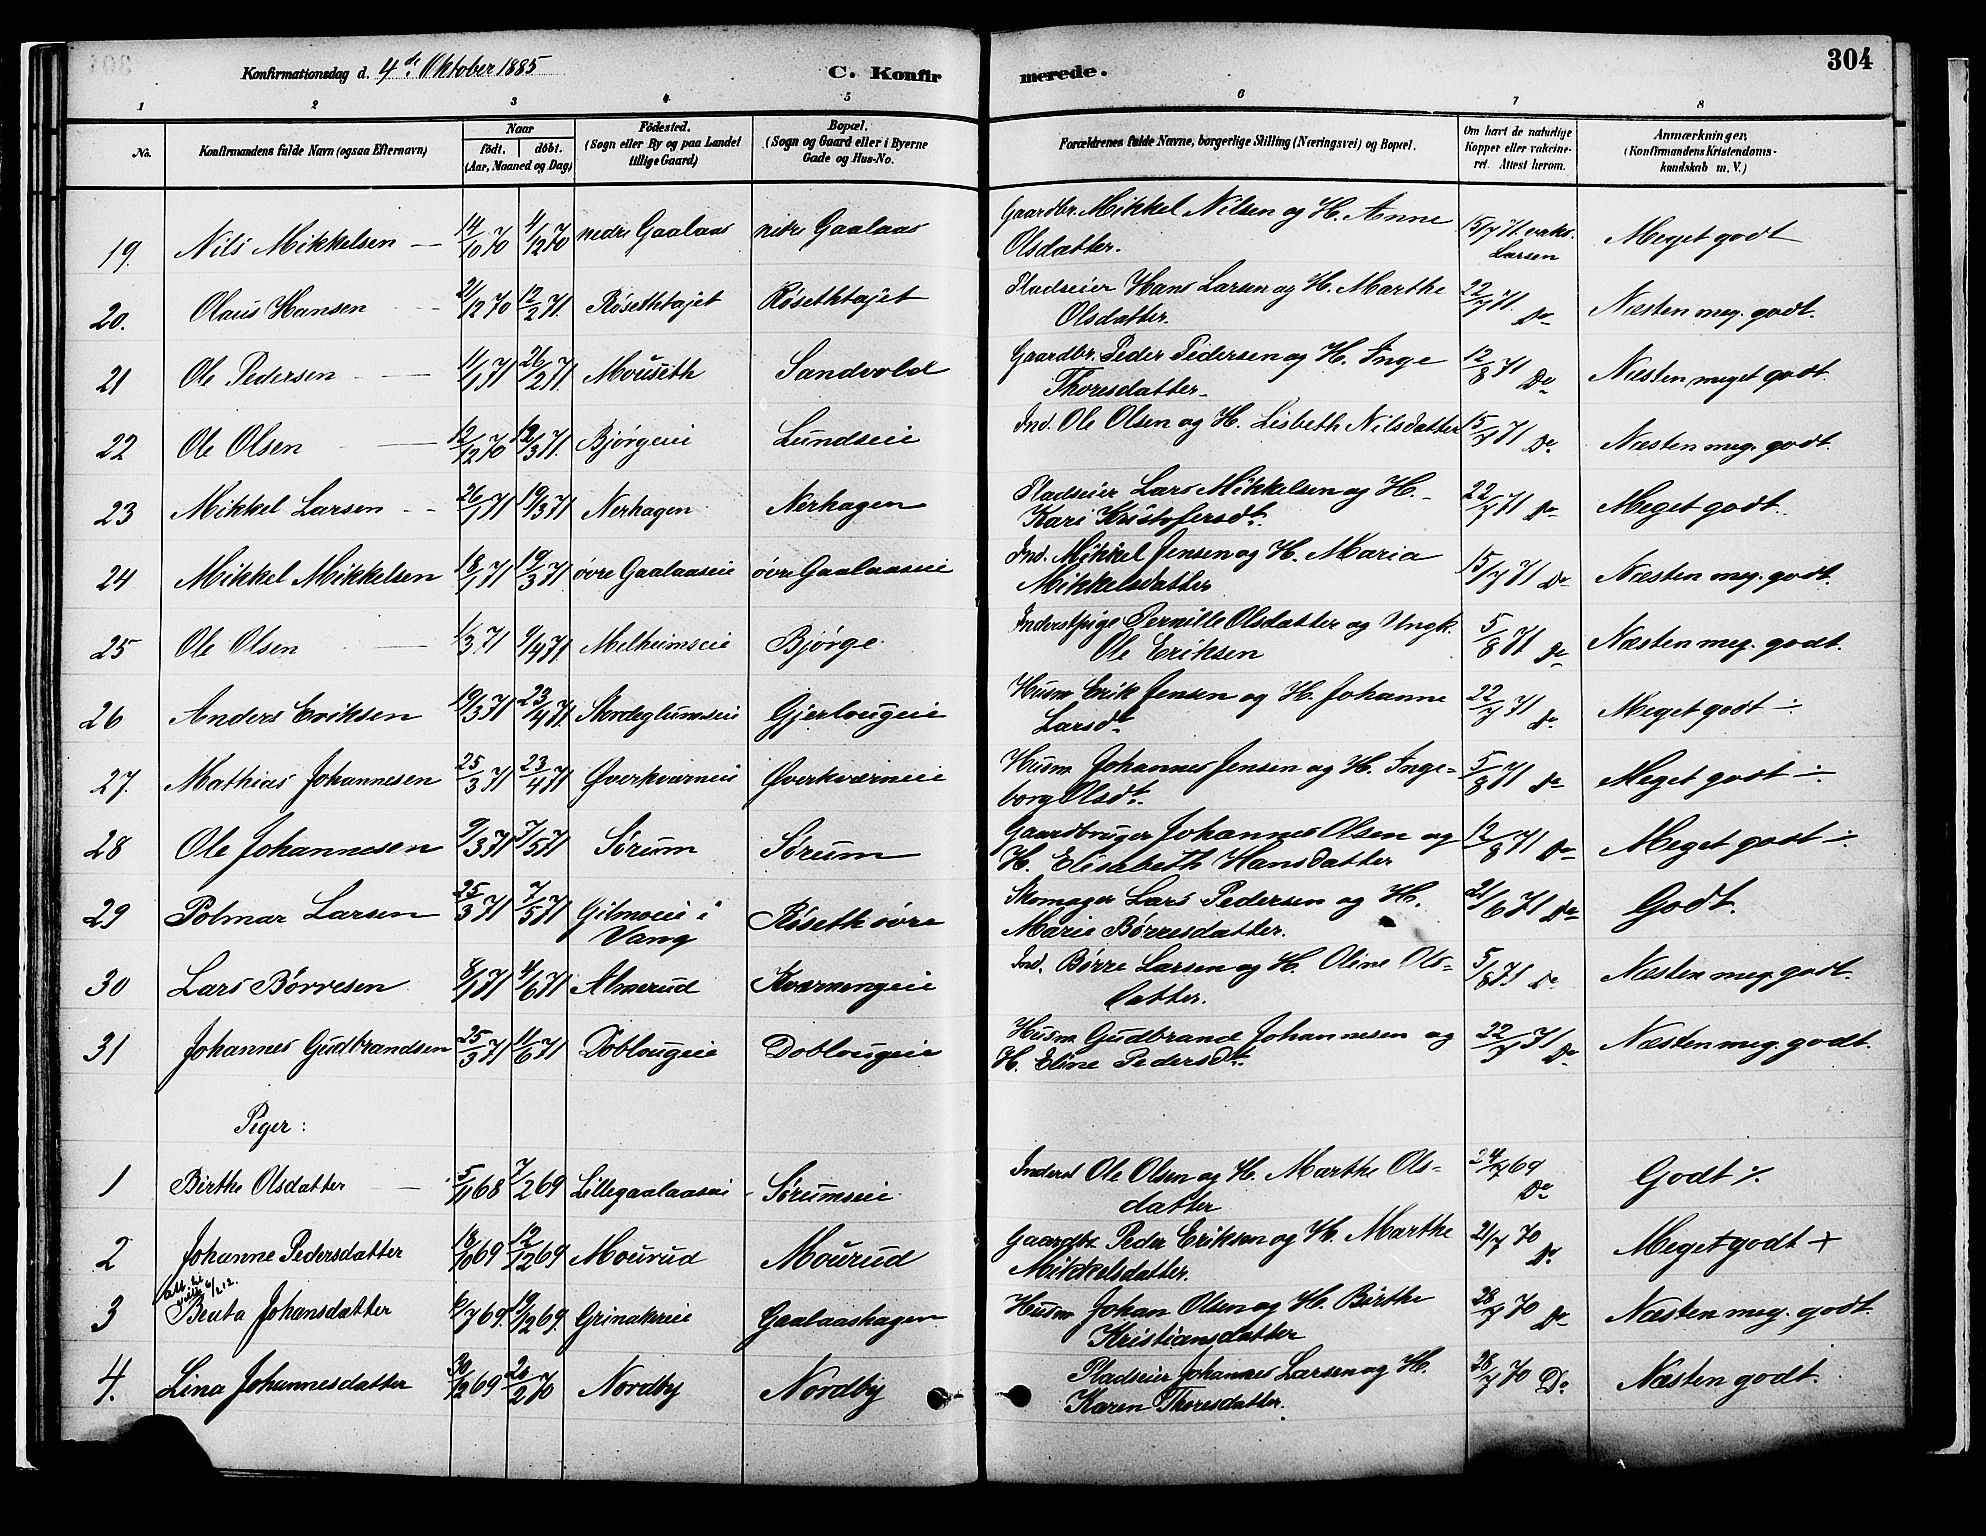 304
Konfirmationsdag d. 4de Oktober 1885
C. Konfirmerede.
1 2 3 4 5 6 7 8
No.
Konfirmandens fulde Navn (ogsaa Efternavn)
Naar
födt. döbt.
(Aar, Maaned og Dag)
Födested.
(Sogn eller By og paa Landet tillige Gaard)
Bopæl.
(Sogn og Gaard eller i Byerne Gade og Hus-No.
Forældrenes fulde Navne, borgerlige Stilling (Næringsvei) og Bopæl.
Om havt de naturlige Kopper eller vakcineret. Attest herom.
Anmærkninger,
(Konfirmandens Kristendomskundskab m. V.)
19. Nils Mikkelsen 14/10 70 4/12 70 nedre Gaalaas nedre Gaalaas Gaardbr. Mikkel Nilsen og H. Anne 15/7 71. vaks. Meget godt
Olsdatter. Larsen
20. Olaus Hansen 21/12 70 12/2 71 Røsethtajet Røsethtajet Pladseier Hans Larsen og H. Marthe 22/7 71. Do Næsten meg. godt.
Olsdatter.
21 Ole Pedersen 11/1 71 26/2 71 Mouseth Sandvold Gaardbr. Peder Pedersen og H. Inge 12/8 71 Do Næsten meget godt.
Thoresdatter
22 Ole Olsen 12/12 70 12/3 71. Bjørgeie Lundseie Ind. Ole Olsen og H. Lisbeth Nilsdatter 15/7 71 Do Næsten meg. godt.
23 Mikkel Larsen 26/1 71 19/3 71 Nerhagen Nerhagen Pladseier Lars Mikkelsen og H. 22/7 71 Do Meget godt.
Kari Kristofersdt.
24 Mikkel Mikkelsen 18/1 71 19/3 71 øvre Gaalaaseie øvre Gaalaaseie Ind. Mikkel Jensen og H. Maria 15/7 71 Do Næsten meg. godt.
Mikkelsdatter
25 Ole Olsen 1/3 71 9/4 71 Melheimseie Bjørge Inderstpige Pernille Olsdatter og Ungk. 5/8 71 Do Næsten meg. godt.
Ole Eriksen
26 Anders Eriksen 19/3 71 23/4 71 Stordeglumseie Gjerlougeie Husm Erik Jensen og H. Johanne 22/7 71 Do Meget godt ÷
Larsdt
27. Mathias Johannesen 25/3 71 23/4 71 Øverkværneie Øverkværneie Husm Johannes Jensen og H. Inge- 5/8 71 Do Meget godt ÷
borg Olsdt.
28 Ole Johannesen 9/3 71 7/5 71 Sørum Sørum Gaardbruger Johannes Olsen og 12/8 71 Do Meget godt ÷
H. Elisabeth Hansdatter
29 Polmar Larsen 25/3 71 7/5 71 Gilmoeie i Røseth øvre Skomager Lars Pedersen og H. 21/6 71 Do Godt.
Vang Marie Børresdatter.
30 Lars Børresen 8/1 71 4/6 71 Almerud Kværnengeie Ind. Børre Larsen og H. Oline Ols- 5/8 71 Do Næsten meg. godt.
datter.
31 Johannes Gudbrandsen 25/3 71 11/6 71 Doblougeie Doblougeie Husm Gudbrand Johannesen og 22/7 71 Do Næsten meg. godt.
H. Eline Pedersdt.
Piger:
1 Birthe Olsdatter 5/11 68 7/2 69 Lillegaalaaseie Sørumseie Inderst Ole Olsen og H. Marthe Ols- 24/7 69 Do Godt ÷
datter
2 Johanne Pedersdatter 18/10 69 12/12 69 Mourud Mourud Gaardbr. Peder Eriksen og H. Marthe 21/7 70 Do Meget godt +
Mikkelsdatter.
3 Beata Johansdatter 6/7 69. 19/12 69. Grinakreie Gaalaashagen Husm Johan Olsen og H. Birthe 28/7 70 Do Næsten meg. godt.
Kristiansdatter
4. Lina Johannesdatter 30/12 69 20/2 70 Nordby Nordby Pladseier Johannes Larsen og H. 28/7 70 Do Næsten godt.
Karen Thoresdatter.